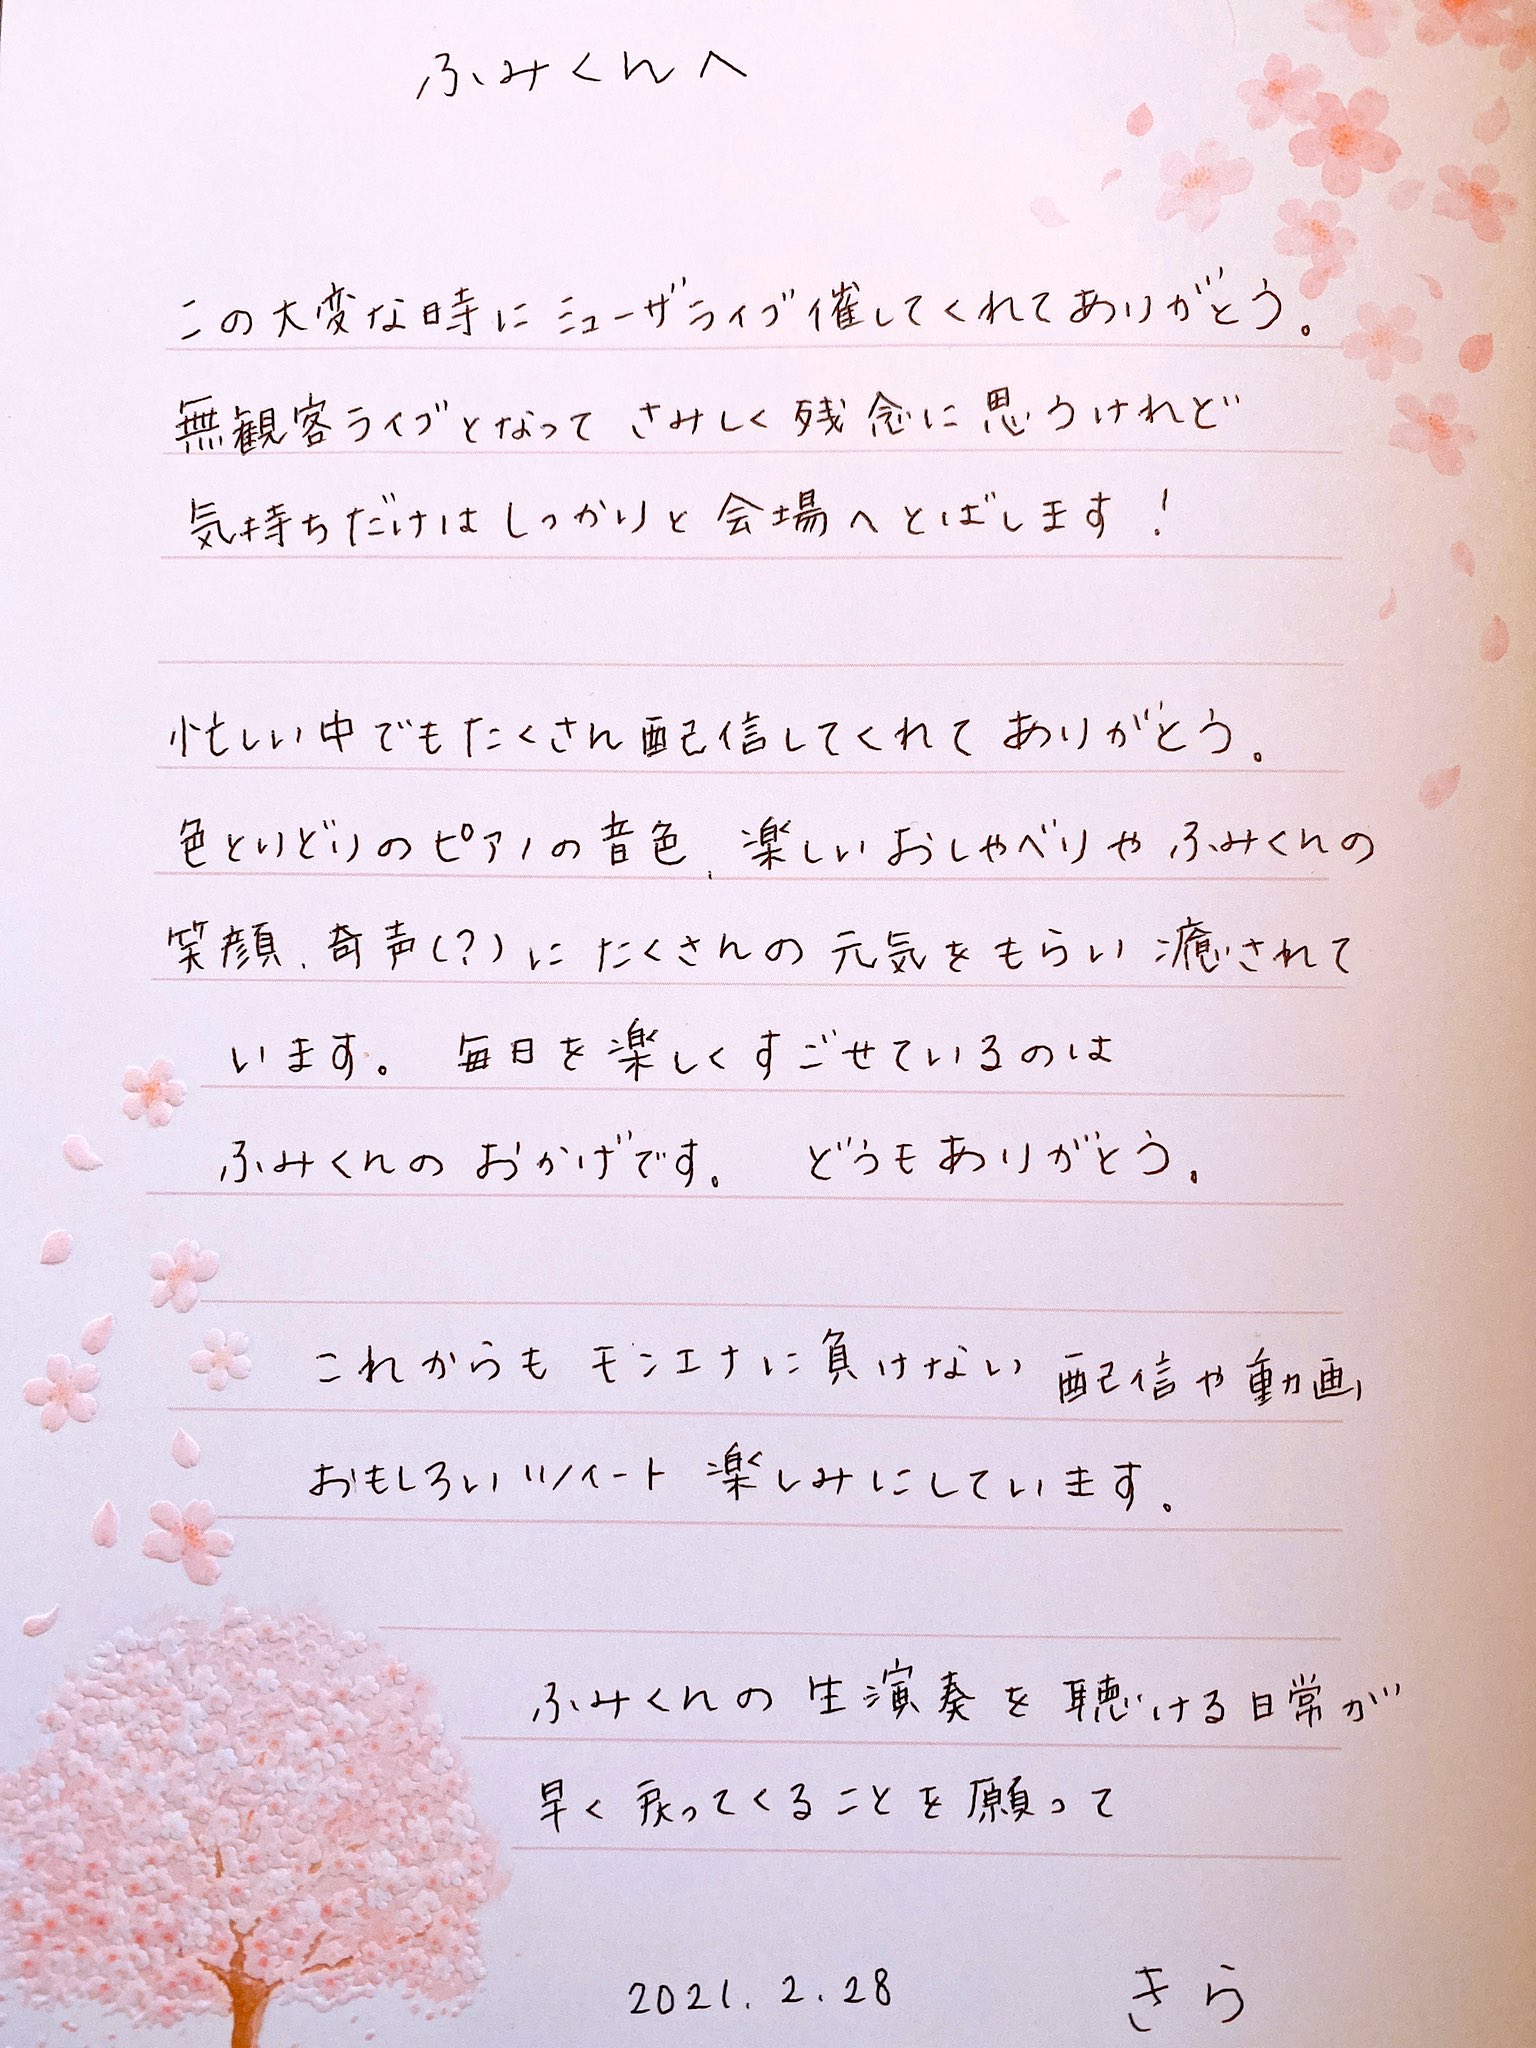 ふみくんへ
この大変な時にミューザライブ催してくれてありがとう。
無観客ライブとなって さみしく残念に思うけれど
気持ちだけはしっかりと会場へとばします！
忙しい中でもたくさん配信してくれてありがとう。
色とりどりのピアノの音色、楽しいおしゃべりやふみくんの
笑顔、奇声(？)にたくさんの元気をもらい癒されて
います。 毎日を楽しくすごせているのは
ふみくんのおかげです。 どうもありがとう。
これからもモンエナに負けない配信や動画、
おもしろいツイート楽しみにしています。
ふみくんの生演奏を聴ける日常が
早く戻ってくることを願って
2021.2.28 きら